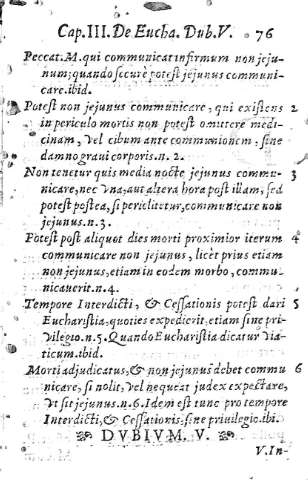 Cap. III. De Eucha. Dub. V. 76
Peccat. M. qui communicat infirmum non jeju-
num; quando securè potest jejunus communi-
care. ibid.
Potest non jejunus communicare, qui existens 2
in periculo mortis non potest omittere medi-
cinam, vel cibum ante communionem, sine
damno graui corporis. n. 2.
Non tenetur quis media nocte jejunus commu- 3
nicare, nec una, aut altera hora post illam, sed
potest postea, si periclitetur, communicare non
jejunus. n. 3.
Potest post aliquot dies morti proximior iterum 4
communicare non jejunus, licèt prius etiam
non jejunus, etiam in eodem morbo, commu-
nicauerit. n. 4.
Tempore Interdicti, & Cessationis potest dari 5
Eucharistia, quoties expedierit, etiam sine pri-
vilegio. n. 5. Quando Eucharistia dicatur via-
ticum. ibid.
Morti adjudicatus, & non jejunus debet commu 6
nicare, si nolit, vel nequeat judex expectare,
ut sit jejunus. n. 6. Idem est tunc pro tempore
Interdicti, & Cessationis, sine priuilegio. ibi.
DVBIVM. V.
V. In-